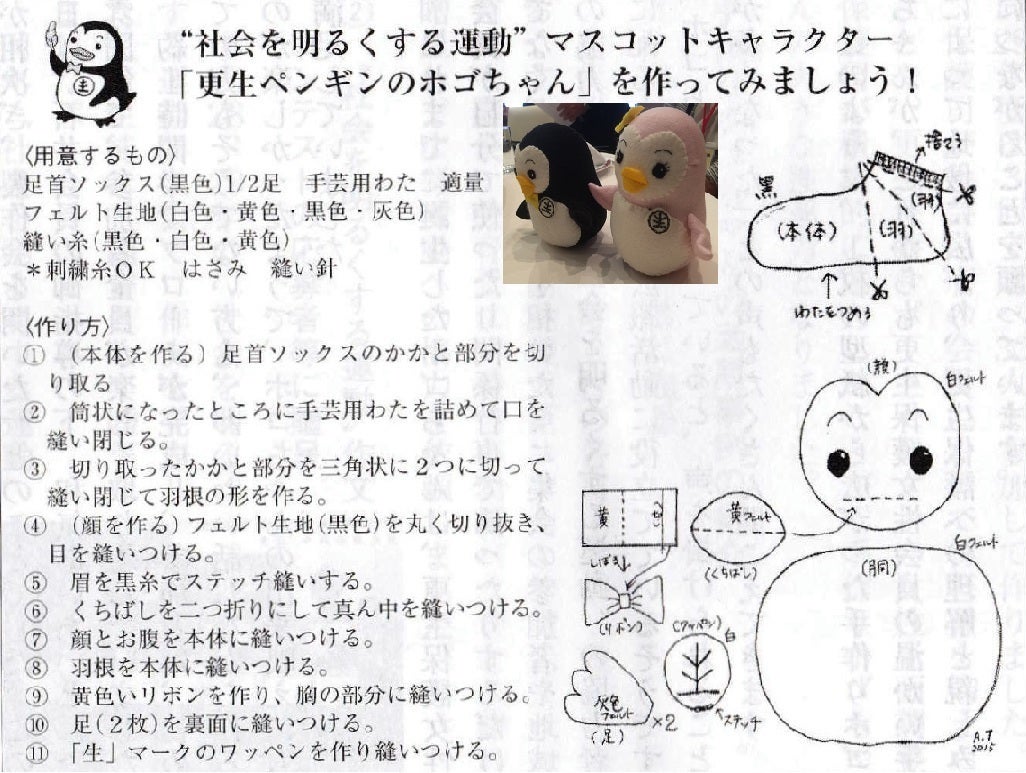 “社会を明るくする運動” マスコットキャラクター
「更生ペンギンのホゴちゃん」を作ってみましょう！
〈用意するもの〉
足首ソックス(黒色)1/2足　手芸用わた　適量
フェルト生地(白色・黄色・黒色・灰色)
縫い糸(黒色・白色・黄色)
＊刺繍糸ＯＫ　はさみ　縫い針
〈作り方〉
①　(本体を作る) 足首ソックスのかかと部分を切
り取る
②　筒状になったところに手芸用わたを詰めて口を
縫い閉じる。
③　切り取ったかかと部分を三角状に２つに切って
縫い閉じて羽根の形を作る。
④　(顔を作る) フェルト生地(黒色)を丸く切り抜き、
目を縫いつける。
⑤　眉を黒糸でステッチ縫いする。
⑥　くちばしを二つ折りにして真ん中を縫いつける。
⑦　顔とお腹を本体に縫いつける。
⑧　羽根を本体に縫いつける。
⑨　黄色いリボンを作り、胸の部分に縫いつける。
⑩　足(２枚)を裏面に縫いつける。
⑪　「生」マークのワッペンを作り縫いつける。
捨てる
黒
(本体)
(羽)
(羽)
わたをつめる
(顔)
白フェルト
黄
しばる
(リボン)
黄フェルト
(くちばし)
白フェルト
(胴)
(ワッペン)
白
ステッチ
灰色
フェルト
×2
(足)
A.T
2015